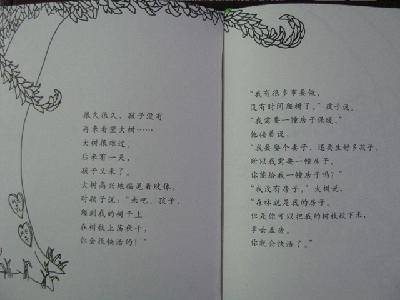 很久很久，孩子没有
再来看望大树……
大树很难过，
后来有一天，
孩子又来了。
大树高兴地摇晃着肢体，
对孩子说：“来吧，孩子，
爬到我的树干上
在树枝上荡秋千，
你会很快活的！”
“我有很多事要做，
没有时间爬树了。”孩子说。
“我需要一幢房子保暖。”
他接着说。
“我要娶个妻子，还要生好多孩子，
所以我需要一幢房子。
你能给我一幢房子吗？”
“我没有房子，”大树说，
“森林就是我的房子。
但是你可以把我的树枝砍下来，
拿去盖房。
你就会快活了。”